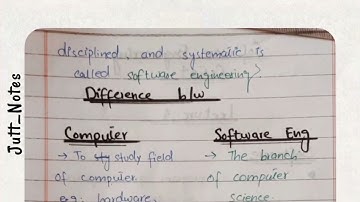 Jutt_Notes
disciplined and systematic is
called software engineering>
Difference b/w
Computer Software Eng
→ To study field → The branch
of computer of computer
e.g: hardware, science.